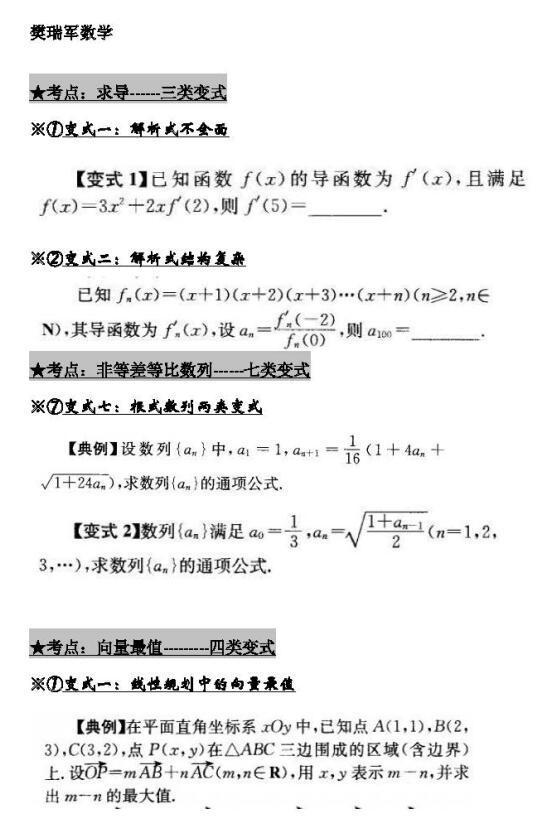 樊瑞军数学
★考点：求导------三类变式
※①变式一：解析式不全面
【变式 1】已知函数 f(x)的导函数为 f′(x),且满足
f(x)=3x²+2xf′(2),则 f′(5)=________.
※②变式二：解析式结构复杂
已知 fₙ(x)=(x+1)(x+2)(x+3)…(x+n)(n≥2,n∈
N),其导函数为 f′ₙ(x),设 aₙ=f′ₙ(−2)/fₙ(0),则 a₁₀₀=________.
★考点：非等差等比数列------七类变式
※⑦变式七：根式数列两类变式
【典例】设数列{aₙ}中,a₁=1,aₙ₊₁=1/16(1+4aₙ+
√(1+24aₙ)),求数列{aₙ}的通项公式.
【变式 2】数列{aₙ}满足 a₀=1/3,aₙ=√((1+aₙ₋₁)/2)(n=1,2,
3,…),求数列{aₙ}的通项公式.
★考点：向量最值---------四类变式
※①变式一：线性规划中的向量最值
【典例】在平面直角坐标系 xOy 中,已知点 A(1,1),B(2,
3),C(3,2),点 P(x,y)在△ABC 三边围成的区域(含边界)
上.设OP→=mAB→+nAC→(m,n∈R),用 x,y 表示 m−n,并求
出 m−n 的最大值.